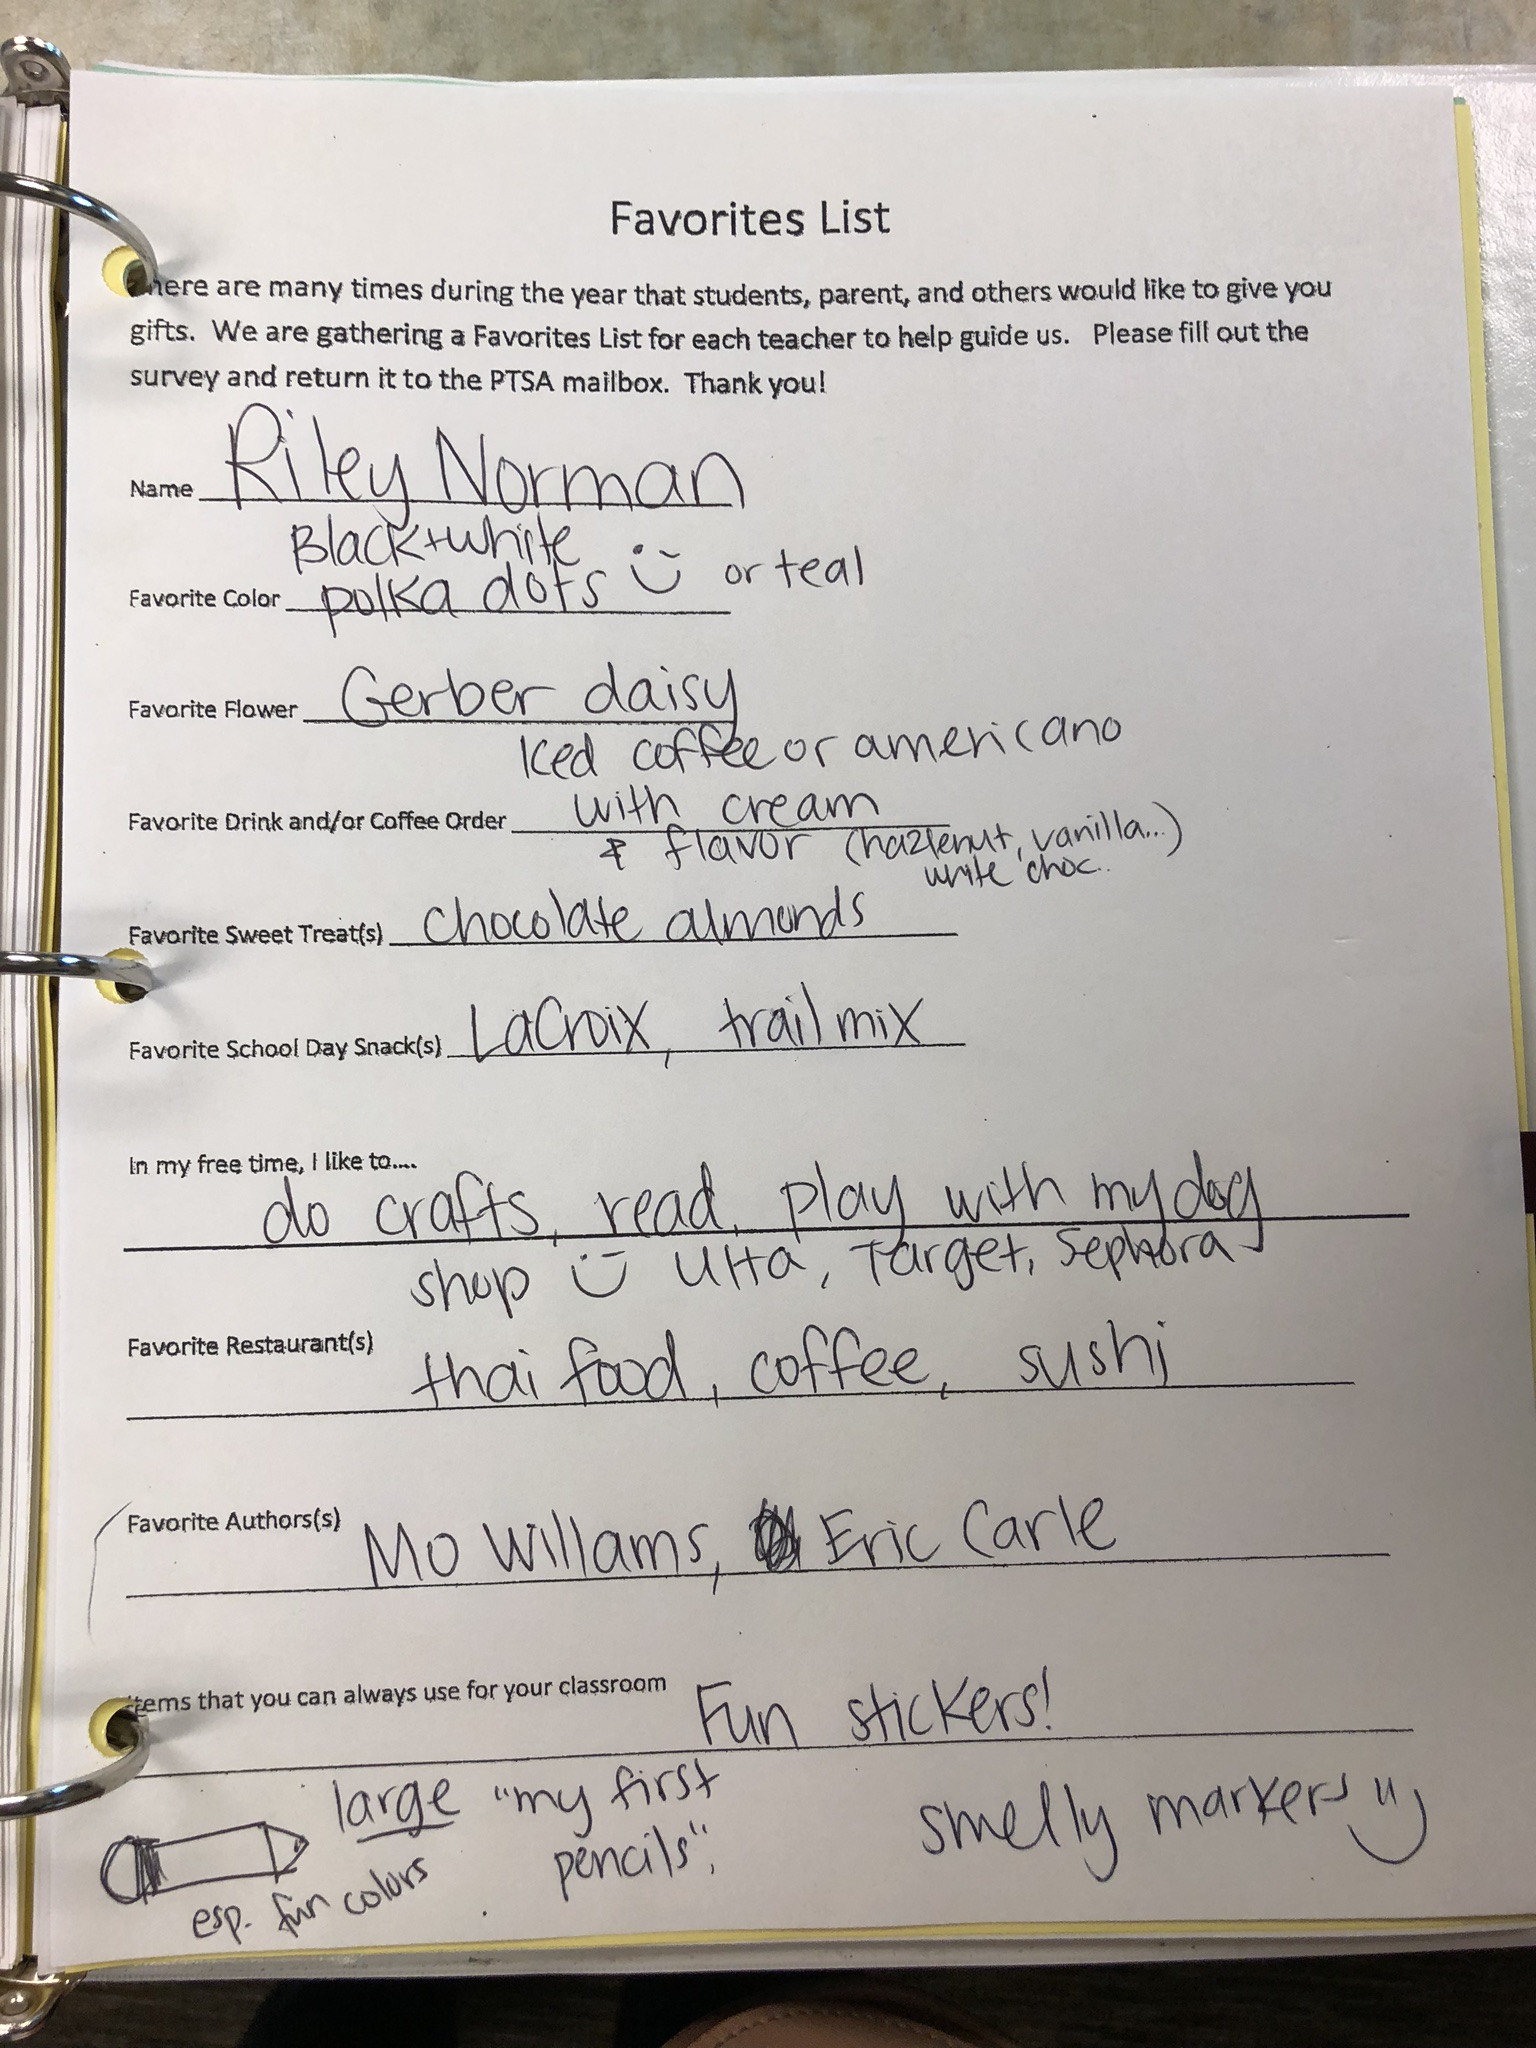 Favorites List
here are many times during the year that students, parent, and others would like to give you
gifts. We are gathering a Favorites List for each teacher to help guide us. Please fill out the
survey and return it to the PTSA mailbox. Thank you!
Name Riley Norman
Black+white
Favorite Color polka dots or teal
Favorite Flower Gerber daisy
Iced coffee or americano
Favorite Drink and/or Coffee Order with cream
& flavor (hazlenut, vanilla...)
white choc..
Favorite Sweet Treat(s) chocolate almonds
Favorite School Day Snack(s) LaCroix, trail mix
In my free time, I like to....
do crafts, read, play with my dog
shop Ulta, Target, Sephora
Favorite Restaurant(s)
thai food, coffee, sushi
Favorite Authors(s)
Mo Willams, Eric Carle
tems that you can always use for your classroom
Fun stickers!
large "my first
pencils",
esp. fun colors
smelly markers